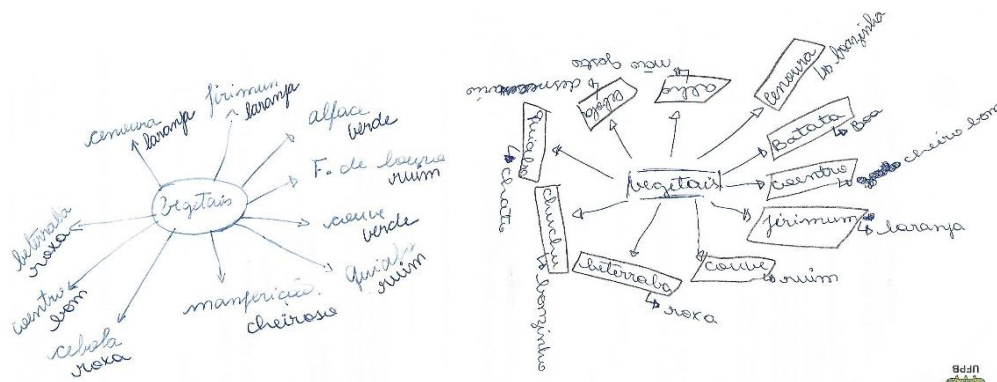 cenoura
laranja
jirimum
laranja
alface
verde
F. de louro
ruim
couve
verde
quiabo
ruim
manjericão
cheiroso
cebola
roxa
coentro
bom
beterraba
roxa
vegetais
vegetais
cenoura
↳ boazinha
Batata
↳ Boa
coentro
↳ cheiro bom
jirimum
↳ laranja
couve
↳ ruim
beterraba
↳ roxa
chuchu
↳ bonzinho
quiabo
↳ chato
cebola
↳ desnecessário
alho
↳ não gosto
UFPB